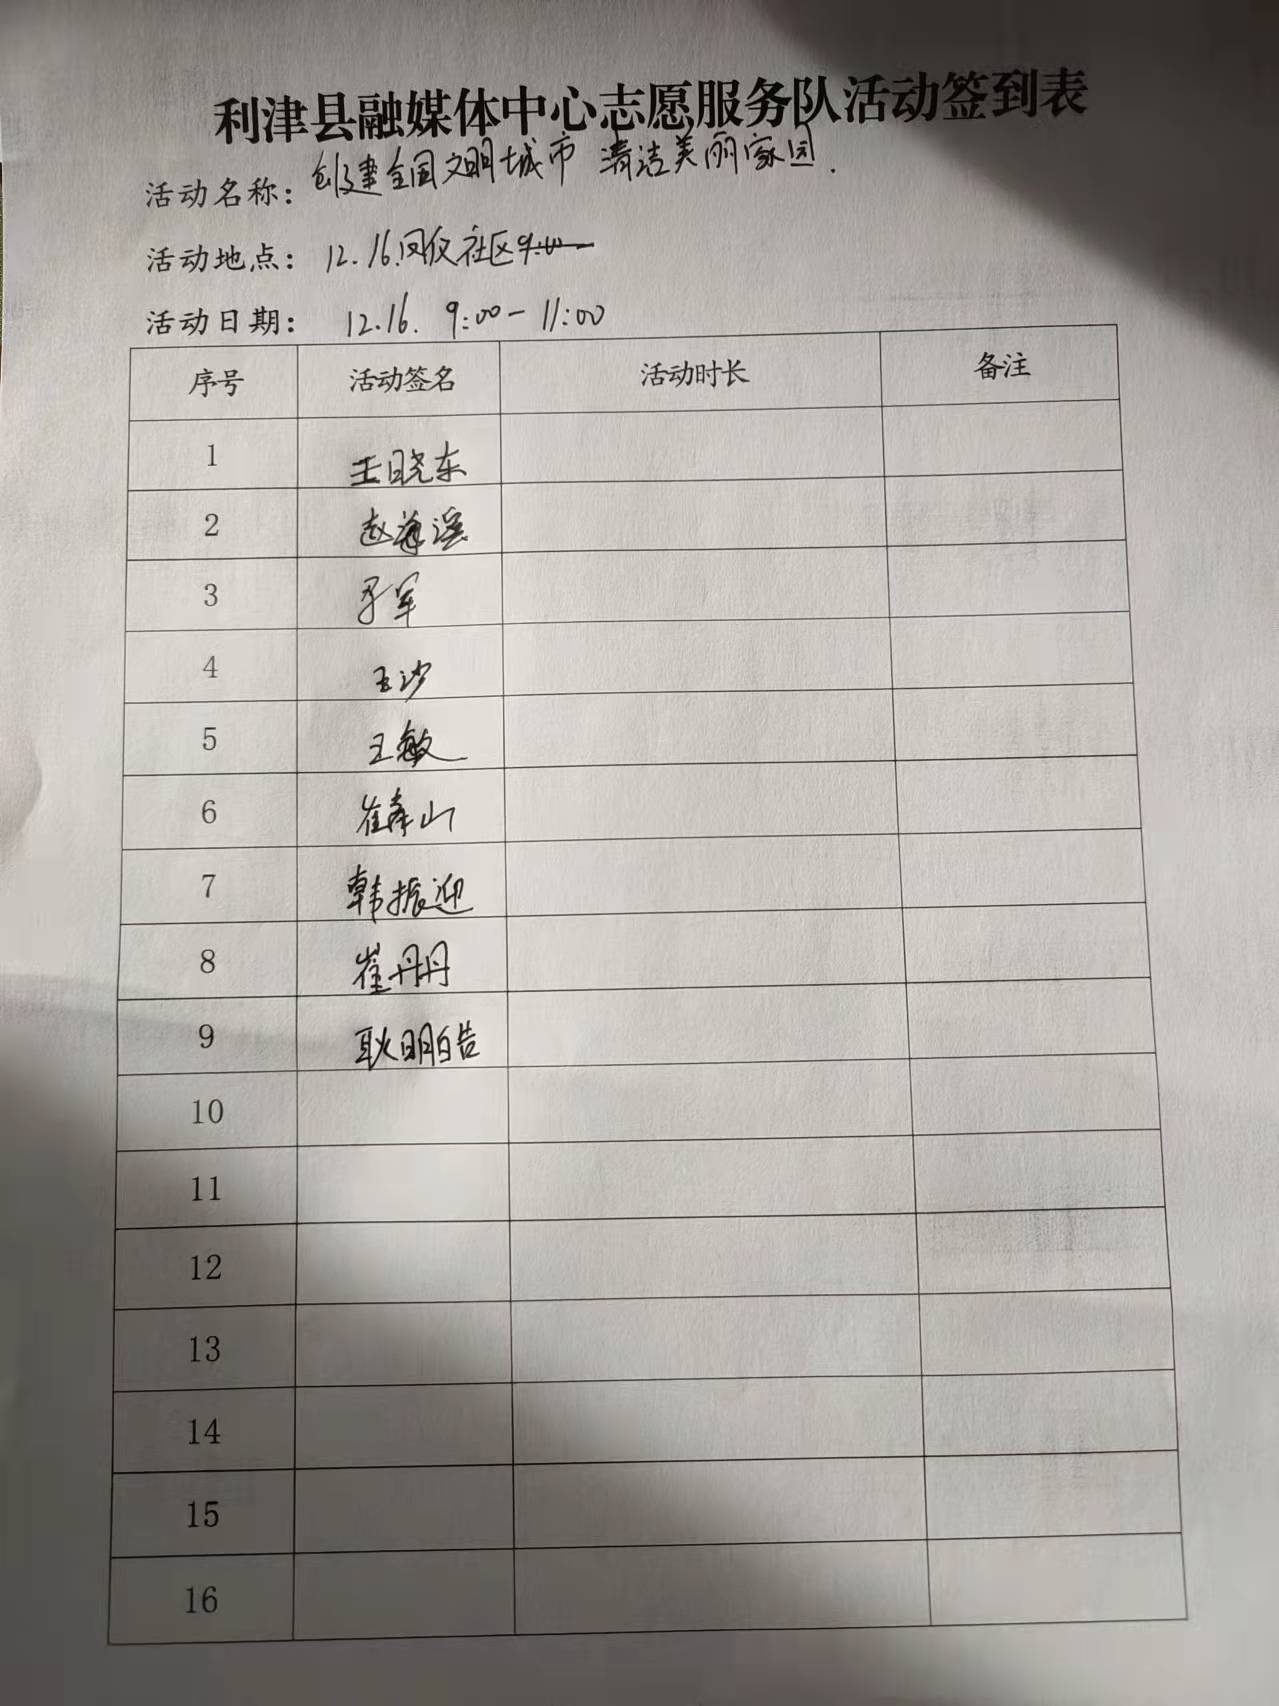 利津县融媒体中心志愿服务队活动签到表
活动名称：创建全国文明城市 清洁美丽家园.
活动地点：12.16.凤仪社区9:00
活动日期：12.16. 9:00-11:00
序号 活动签名 活动时长 备注
1 王晓东
2 赵海滨
3 军
4 王沙
5 王敏
6 崔寿山
7 韩振迎
8 崔丹丹
9 耿明皓
10
11
12
13
14
15
16